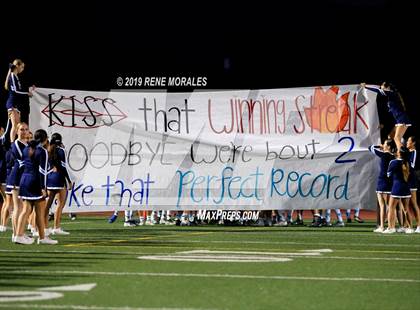 ©2019 RENE MORALES
KISS that Winning Streak
GOODBYE were bout 2
Take that Perfect Record
MAXPREPS.COM